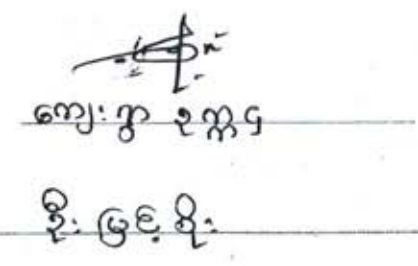 ကျေးရွာ ဥက္ကဌ
ဦးမြင့်စိုး